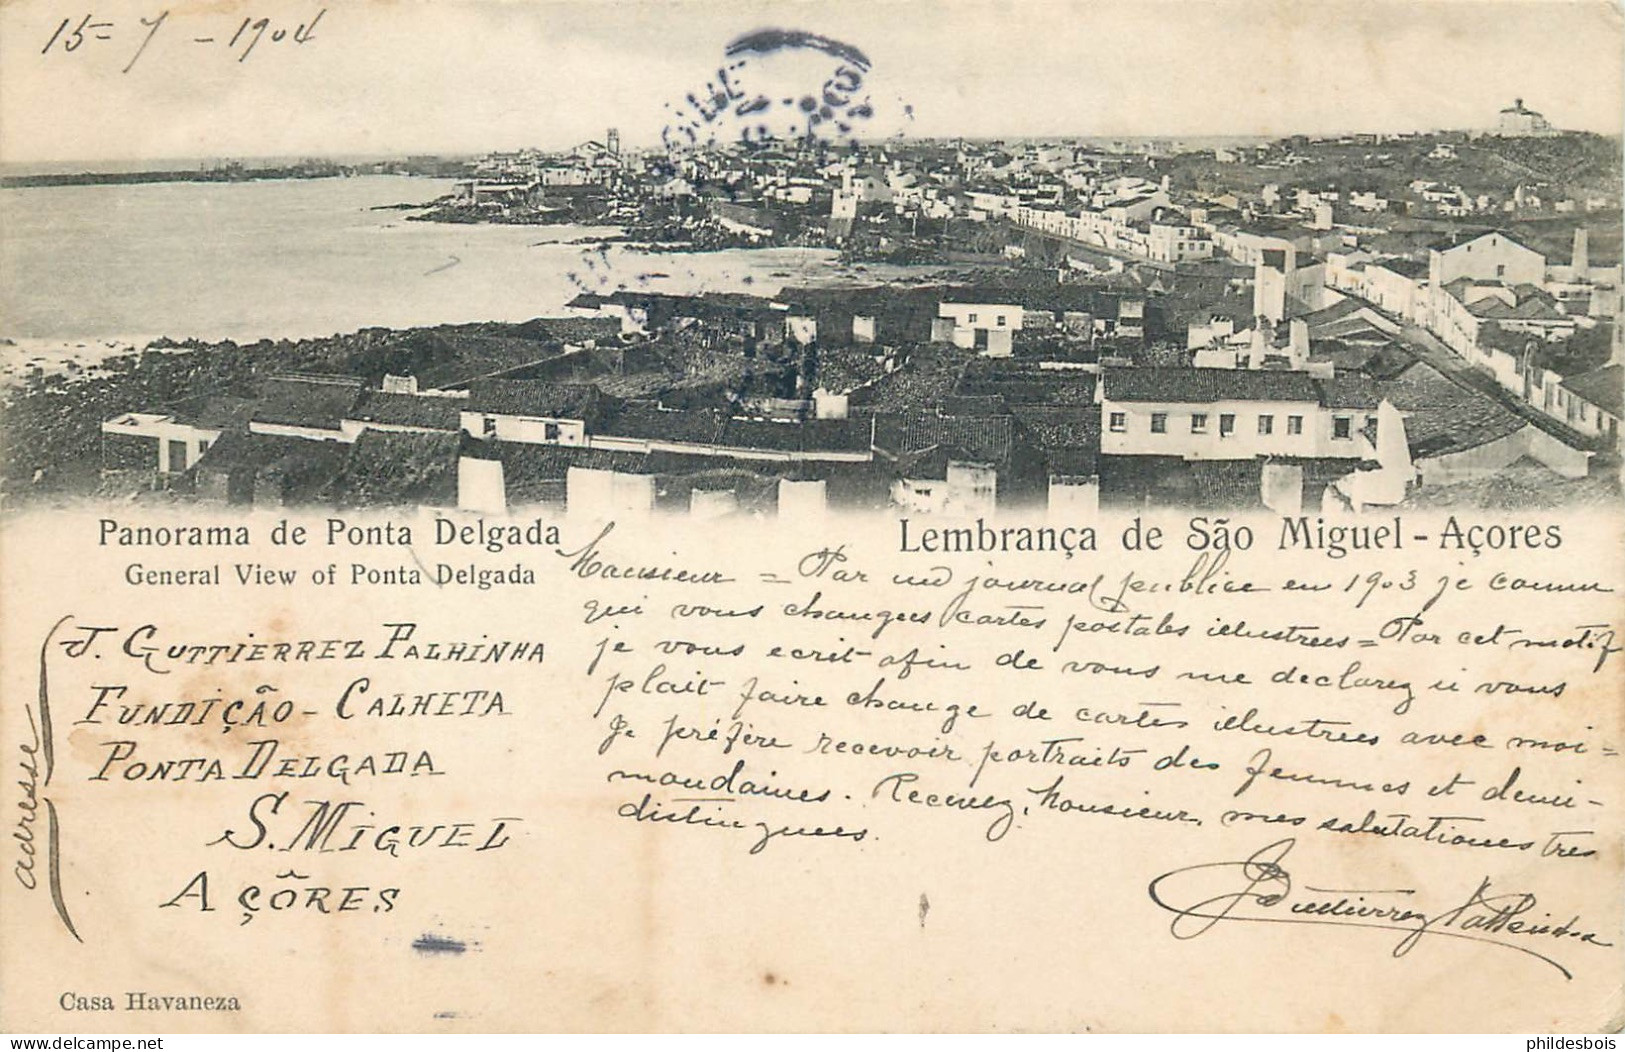 15-7-1904
Panorama de Ponta Delgada
General View of Ponta Delgada
Lembrança de São Miguel - Açores
Monsieur = Par un journal publice en 1903 je connu
qui vous changees cartes postales illustrees = Par cet motif
je vous ecrit afin de vous me declarez si vous
plait faire change de cartes illustrees avec moi =
Je préfère recevoir portraits des femmes et demi-
mondaines. Recevez, Monsieur, mes salutationes tres
distinguees.
J. Guttierrez Palhinha
adresse
J. GUTTIERREZ PALHINHA
FUNDIÇÃO - CALHETA
PONTA DELGADA
S. MIGUEL
AÇÔRES
Casa Havaneza
philedesbois